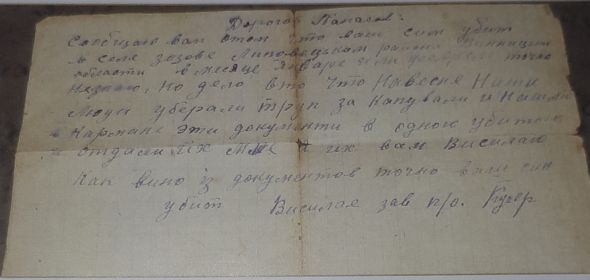 Дорогой Папаков.
Сообщаю вам о том что ваш син убит
в селе зозове Липовецьком района винницкой
области в месяце Январе или феврале точно
незнаю, но дело в то что Навесне Наши
люди уберали труп за капували и Нашли
в Кармане эти документи в одного убитого
и отдали их мне я их вам Висилаю
Как видно із документов точно ваш син
убит Висилає зав п/о. Кучер